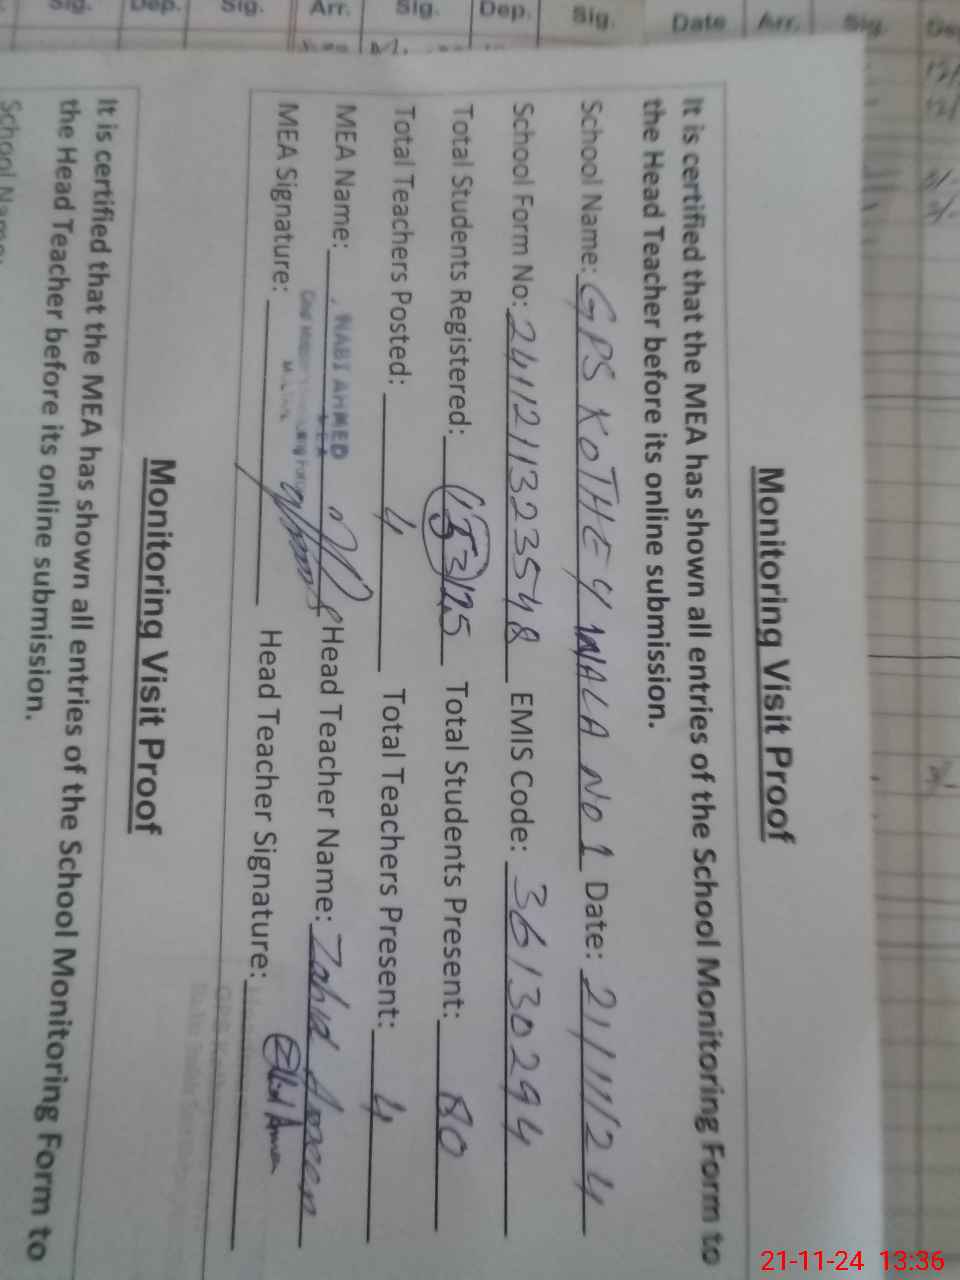 Sig. Dep. Sig. Arr. Sig. Dep. Sig. Date Arr. Sig.
Monitoring Visit Proof
It is certified that the MEA has shown all entries of the School Monitoring Form to
the Head Teacher before its online submission.
School Name: GPS KOTHEY WALA NO 1 Date: 21/11/24
School Form No: 2411211323548 EMIS Code: 36130294
Total Students Registered: 125 Total Students Present: 80
Total Teachers Posted: 4 Total Teachers Present: 4
MEA Name: NABI AHMED Head Teacher Name: Zahid Ameen
MEA
MEA Signature: Head Teacher Signature:
Monitoring Visit Proof
It is certified that the MEA has shown all entries of the School Monitoring Form to
the Head Teacher before its online submission.
School Name:
21-11-24 13:36